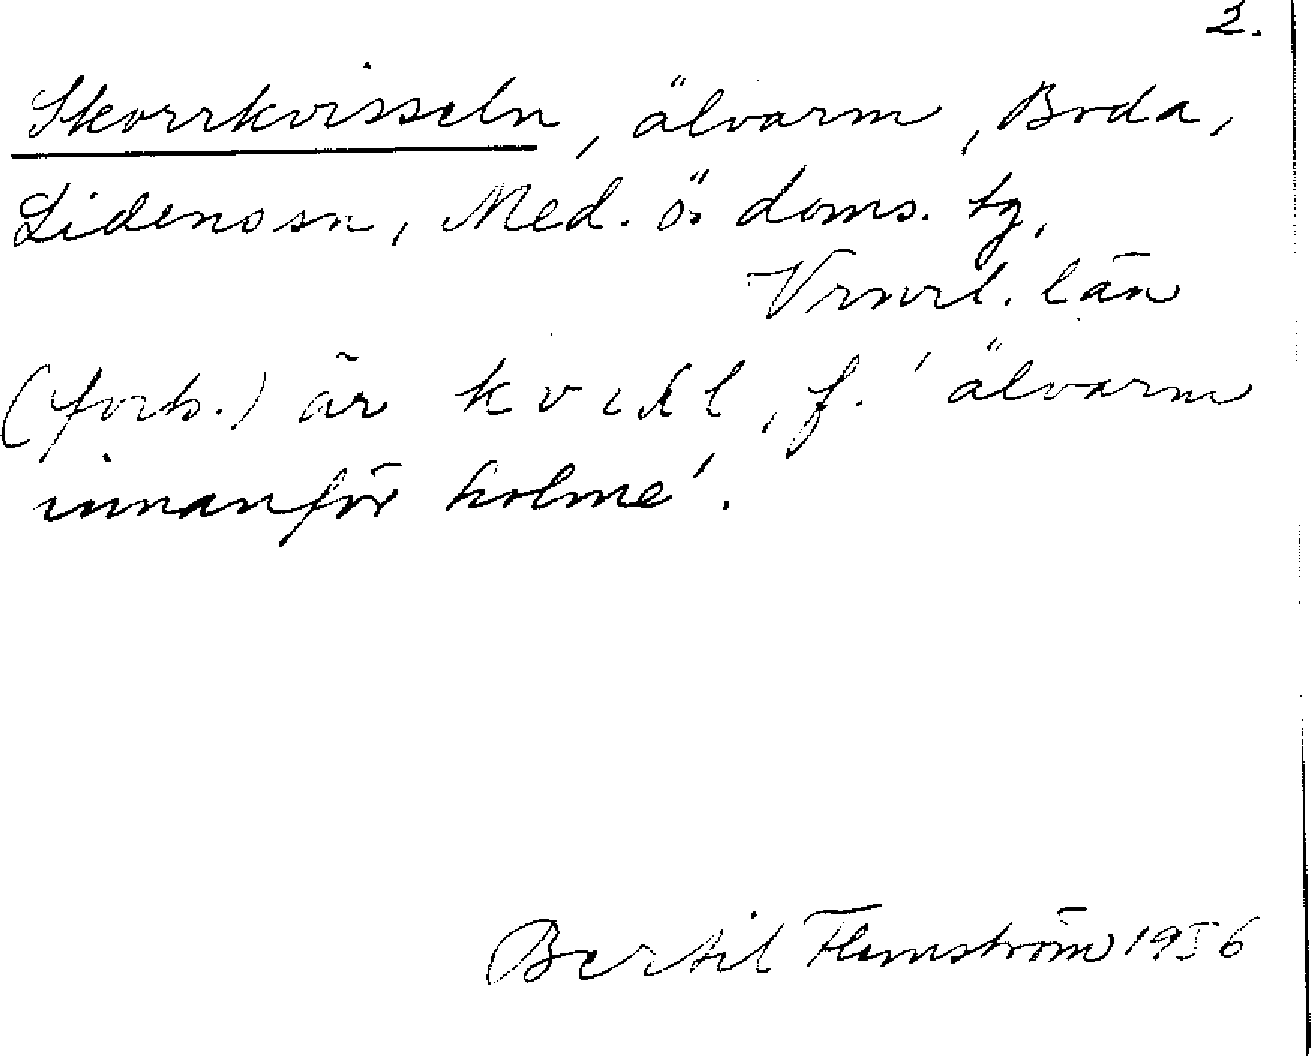 2.
Skorrkvisseln, älvarm, Boda,
Lidens sn, Med. ö. doms. tg,
Vrnrl. län
(forts.) är kvisl, f. 'älvarm
innanför holme'.
Bertil Flemström 1956